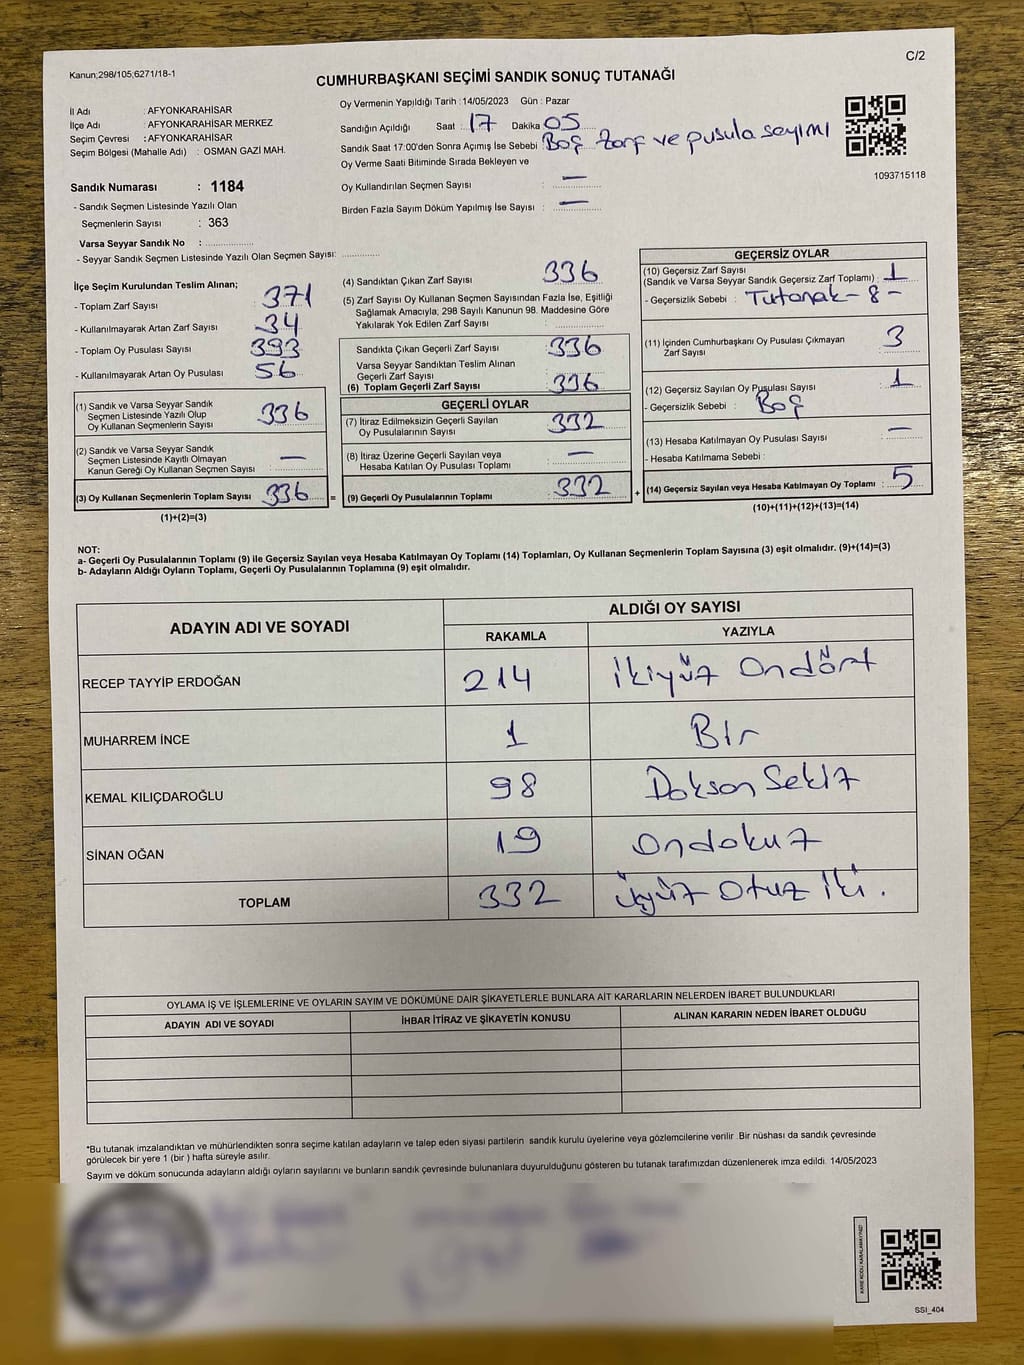 Kanun;298/105;6271/18-1
C/2
CUMHURBAŞKANI SEÇİMİ SANDIK SONUÇ TUTANAĞI
İl Adı : AFYONKARAHİSAR
İlçe Adı : AFYONKARAHİSAR MERKEZ
Seçim Çevresi : AFYONKARAHİSAR
Seçim Bölgesi (Mahalle Adı) : OSMAN GAZİ MAH.
Oy Vermenin Yapıldığı Tarih :14/05/2023 Gün : Pazar
Sandığın Açıldığı Saat : 17 Dakika 05
Sandık Saat 17:00'den Sonra Açımış İse Sebebi : Boş Zarf ve pusula sayımı
Oy Verme Saati Bitiminde Sırada Bekleyen ve
Oy Kullandırılan Seçmen Sayısı : —
Birden Fazla Sayım Döküm Yapılmış İse Sayısı : —
1093715118
Sandık Numarası : 1184
- Sandık Seçmen Listesinde Yazılı Olan
Seçmenlerin Sayısı : 363
Varsa Seyyar Sandık No :
- Seyyar Sandık Seçmen Listesinde Yazılı Olan Seçmen Sayısı:
İlçe Seçim Kurulundan Teslim Alınan;
- Toplam Zarf Sayısı : 371
- Kullanılmayarak Artan Zarf Sayısı : 34
- Toplam Oy Pusulası Sayısı : 393
- Kullanılmayarak Artan Oy Pusulası : 56
(1) Sandık ve Varsa Seyyar Sandık
Seçmen Listesinde Yazılı Olup
Oy Kullanan Seçmenlerin Sayısı : 336
(2) Sandık ve Varsa Seyyar Sandık
Seçmen Listesinde Kayıtlı Olmayan
Kanun Gereği Oy Kullanan Seçmen Sayısı : —
(3) Oy Kullanan Seçmenlerin Toplam Sayısı : 336 =
(1)+(2)=(3)
(4) Sandıktan Çıkan Zarf Sayısı : 336
(5) Zarf Sayısı Oy Kullanan Seçmen Sayısından Fazla İse, Eşitliği
Sağlamak Amacıyla, 298 Sayılı Kanunun 98. Maddesine Göre
Yakılarak Yok Edilen Zarf Sayısı :
Sandıkta Çıkan Geçerli Zarf Sayısı : 336
Varsa Seyyar Sandıktan Teslim Alınan
Geçerli Zarf Sayısı :
(6) Toplam Geçerli Zarf Sayısı : 336
GEÇERLİ OYLAR
(7) İtiraz Edilmeksizin Geçerli Sayılan
Oy Pusulalarının Sayısı : 332
(8) İtiraz Üzerine Geçerli Sayılan veya
Hesaba Katılan Oy Pusulası Toplamı : —
(9) Geçerli Oy Pusulalarının Toplamı : 332 +
GEÇERSİZ OYLAR
(10) Geçersiz Zarf Sayısı
(Sandık ve Varsa Seyyar Sandık Geçersiz Zarf Toplamı) : 1
- Geçersizlik Sebebi : Tutanak - 8 -
(11) İçinden Cumhurbaşkanı Oy Pusulası Çıkmayan
Zarf Sayısı : 3
(12) Geçersiz Sayılan Oy Pusulası Sayısı : 1
- Geçersizlik Sebebi : Boş
(13) Hesaba Katılmayan Oy Pusulası Sayısı : —
- Hesaba Katılmama Sebebi :
(14) Geçersiz Sayılan veya Hesaba Katılmayan Oy Toplamı : 5
(10)+(11)+(12)+(13)=(14)
NOT:
a- Geçerli Oy Pusulalarının Toplamı (9) ile Geçersiz Sayılan veya Hesaba Katılmayan Oy Toplamı (14) Toplamları, Oy Kullanan Seçmenlerin Toplam Sayısına (3) eşit olmalıdır. (9)+(14)=(3)
b- Adayların Aldığı Oyların Toplamı, Geçerli Oy Pusulalarının Toplamına (9) eşit olmalıdır.
ADAYIN ADI VE SOYADI ALDIĞI OY SAYISI
RAKAMLA YAZIYLA
RECEP TAYYİP ERDOĞAN 214 İkiyüz Ondört
MUHARREM İNCE 1 Bir
KEMAL KILIÇDAROĞLU 98 Doksan Sekiz
SİNAN OĞAN 19 Ondokuz
TOPLAM 332 Üçyüz Otuz İki.
OYLAMA İŞ VE İŞLEMLERİNE VE OYLARIN SAYIM VE DÖKÜMÜNE DAİR ŞİKAYETLERLE BUNLARA AİT KARARLARIN NELERDEN İBARET BULUNDUKLARI
ADAYIN ADI VE SOYADI İHBAR İTİRAZ VE ŞİKAYETİN KONUSU ALINAN KARARIN NEDEN İBARET OLDUĞU
*Bu tutanak imzalandıktan ve mühürlendikten sonra seçime katılan adayların ve talep eden siyasi partilerin sandık kurulu üyelerine veya gözlemcilerine verilir .Bir nüshası da sandık çevresinde
görülecek bir yere 1 (bir ) hafta süreyle asılır.
Sayım ve döküm sonucunda adayların aldığı oyların sayılarını ve bunların sandık çevresinde bulunanlara duyurulduğunu gösteren bu tutanak tarafımızdan düzenlenerek imza edildi. 14/05/2023
KARE KODU KARALAMAYINIZ!
SSI_404